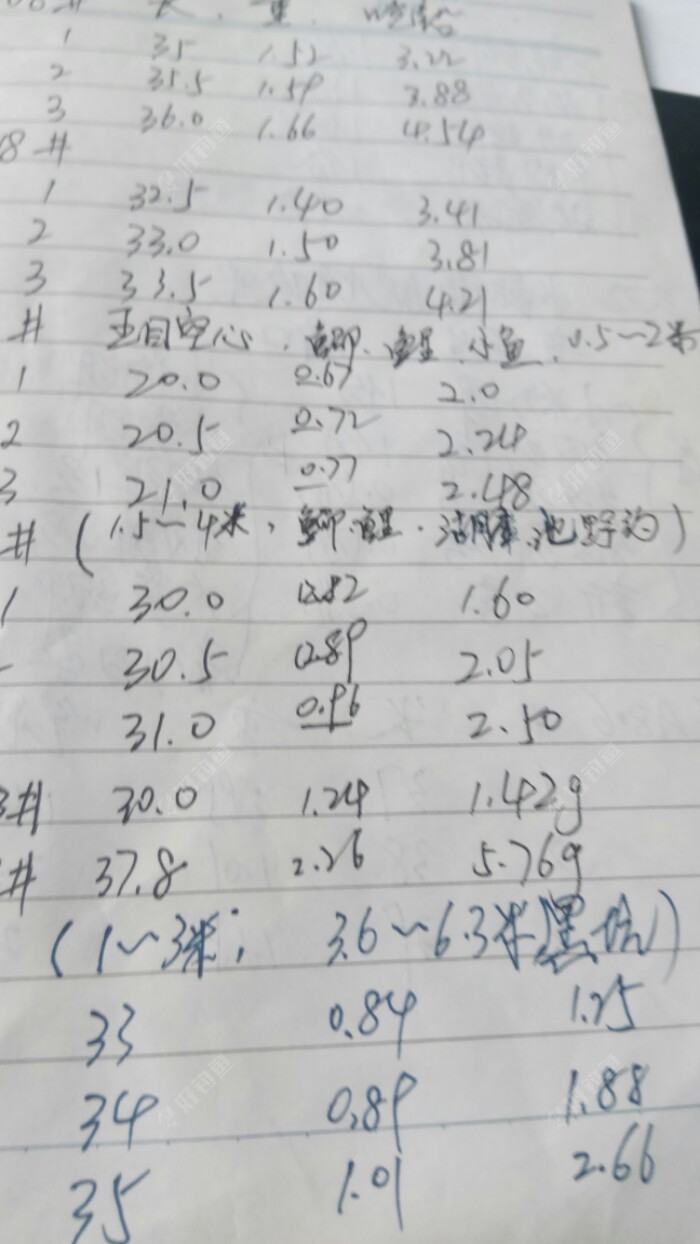 08# 长 . 重 . 吃铅
1 35 1.52 3.22
2 35.5 1.59 3.88
3 36.0 1.66 4.54
8#
1 32.5 1.40 3.41
2 33.0 1.50 3.81
3 33.5 1.60 4.21
# 空心 . 鲫 . 鲤 . 小鱼 . 0.5~2米
1 20.0 0.67 2.0
2 20.5 0.72 2.24
3 21.0 0.77 2.48
# (1.5~4米, 鲫.鲤 . 湖库.池野钓)
1 30.0 0.82 1.60
30.5 0.89 2.05
31.0 0.96 2.50
3# 30.0 1.24 1.42g
# 37.8 2.26 5.76g
(1~3米; 3.6~6.3米黑坑)
33 0.84 1.25
34 0.89 1.88
35 1.01 2.66